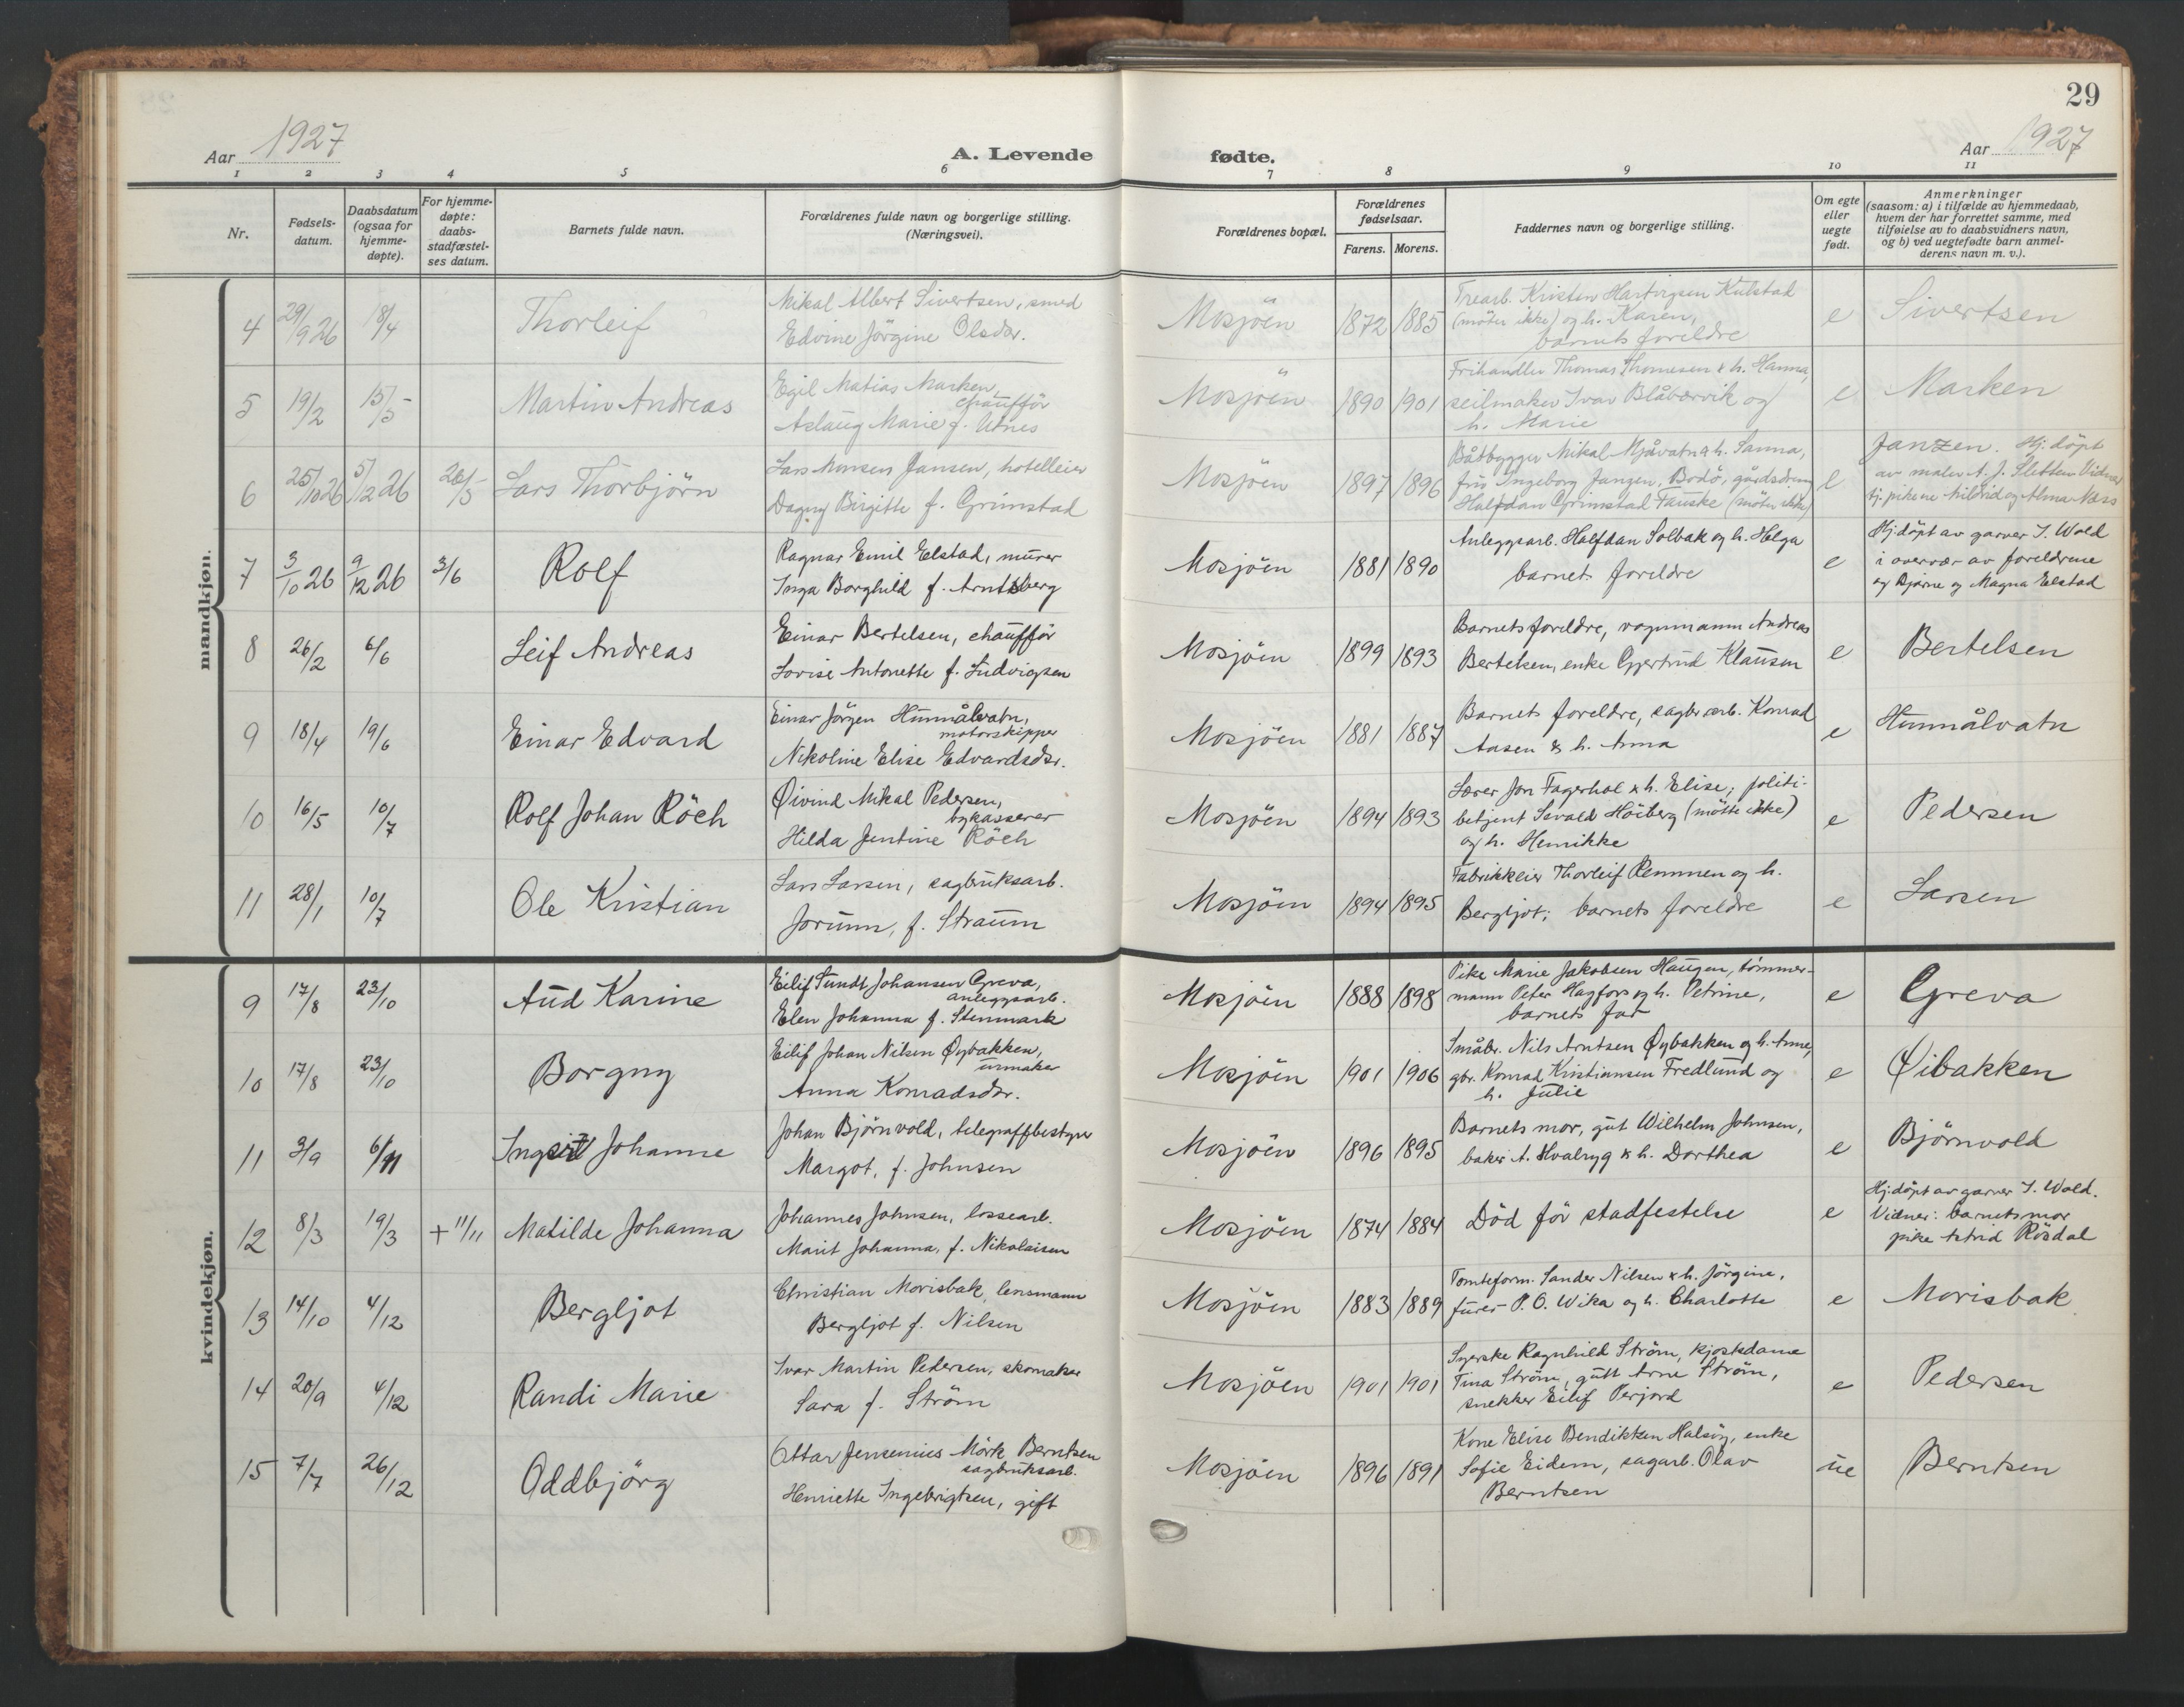 29
Aar 1927
A. Levende
fødte.
Aar 1927
1 2 3 4 5 6 7 8 9 10 11
Nr.
Fødsels-
datum.
Daabsdatum
(ogsaa for
hjemme-
døpte).
For hjemme-
døpte:
daabs-
stadfæstel-
ses datum.
Barnets fulde navn.
Forældrenes fulde navn og borgerlige stilling.
(Næringsvei).
Forældrenes bopæl.
Forældrenes
fødselsaar.
Farens. Morens.
Faddernes navn og borgerlige stilling.
Om egte
eller
uegte
født.
Anmerkninger
(saasom: a) i tilfælde av hjemmedaab,
hvem der har forrettet samme, med
tilføielse av to daabsvidners navn,
og b) ved uegtefødte barn anmel-
derens navn m. v.).
mandkjøn.
4 29/9 26 18/4 Thorleif
Mikal Albert Sivertsen, smed
Edvine Jörgine Olsdtr.
Mosjöen 1872 1885
Trearb. Kristen Hartvigsen Kulstad
(möter ikke) og h. Karen,
barnets foreldre
e Sivertsen
5 19/2 15/5 Martin Andreas
Egil Matias Marken,
chaufför
Aslaug Marie f. Utnes
Mosjöen 1890 1901
Frihandler Thomas Thomesen & h. Hanna,
seilmaker Ivar Blåbærvik og
h. Marie
e Marken
6 25/10 26 5/12 26 26/5 Lars Thorbjörn
Lars Monsen Jansen, hotelleier
Dagny Birgitte f. Grimstad
Mosjöen 1897 1896
Båtbygger Mikal Mjåvatn & h. Sanna,
frü Ingeborg Janzen, Bodö, gårdsdreng
Halfdan Grimstad Fauske (möter ikke)
e
Janzen. Hj. döpt
av maler A. J. Sletten Vidner
tj. pikene Hildrid og Alma Næss
7 3/10 26 9/12 26 3/6 Rolf
Ragnar Emil Elstad, murer
Inga Borghild f. Arntsberg
Mosjöen 1881 1890
Anleggsarb. Halfdan Solbak og h. Helga
barnets foreldre
e
Hj. döpt av garver I. Wold
i overvær av foreldrene
og Bjarne og Magna Elstad
8 26/2 6/6 Leif Andreas
Einar Bertelsen, chaufför
Lovise Antonette f. Ludvigsen
Mosjöen 1899 1893
Barnets foreldre, vognmann Andreas
Bertelsen, enke Gjertrud Klausen
e Bertelsen
9 18/4 19/6 Einar Edvard
Einar Jörgen Hunnålvatn,
motorskipper
Nikoline Elise Edvardsdtr.
Mosjöen 1881 1887
Barnets foreldre, sagbr.arb. Konrad
Aasen & h. Anna
e Hunnålvatn
10 16/5 10/7 Rolf Johan Röch
Øivind Mikal Pedersen,
bykasserer
Hilda Jentine Röch
Mosjöen 1894 1893
Lærer Jon Fagerhol & h. Elise; politi-
betjent Sevald Höiberg (mötte ikke)
og h. Henrikke
e Pedersen
11 28/1 10/7 Ole Kristian
Lars Larsen, sagbruksarb.
Jorunn, f. Straum
Mosjöen 1894 1895
Fabrikkeier Thorleif Remmen og h.
Bergljot; barnets foreldre
e Larsen
kvindekjøn.
9 17/8 23/10 Aud Karine
Eilif Sundt Johansen Greva,
anleggsarb.
Elen Johanna f. Stenmark
Mosjöen 1888 1898
Pike Marie Jakobsen Haugen, tömmer-
mann Peter Hagfors og h. Petrine,
barnets far
e Greva
10 17/8 23/10 Borgny
Eilif Johan Nilsen Öybakken,
urmaker
Anna Konradsdtr.
Mosjöen 1901 1906
Småbr. Nils Arntsen Öybakken og h. Anne,
gbr. Konrad Kristiansen Fredlund og
h. Julie
e Öibakken
11 3/9 6/11 Ingrid Johanne
Johan Björnvold, telegrafbestyrer
Margot, f. Johnsen
Mosjöen 1896 1895
Barnets mor, gut Wilhelm Johnsen,
baker A. Hvalryg & h. Dorthea
e Björnvold
12 8/3 19/3 + 11/11 Matilde Johanna
Johannes Johnsen, lossearb.
Marit Johanna, f. Nikolaisen
Mosjöen 1874 1884
Död för stadfestelse
e
Hj. döpt av garver I. Wold.
Vidner: barnets mor
pike Astrid Rösdal
13 14/10 4/12 Bergljot
Christian Morisbak, lensmann
Bergljot f. Nilsen
Mosjöen 1883 1889
Tomteform. Sander Nilsen & h. Jörgine,
furer P. O. Wika og h. Charlotte
e Morisbak
14 20/9 4/12 Randi Marie
Ivar Martin Pedersen, skomaker
Sara f. Ström
Mosjöen 1901 1901
Syerske Ragnhild Ström, kjoskdame
Tina Ström, gutt Arne Ström,
snekker Eilif Perjord
e Pedersen
15 7/7 26/12 Oddbjörg
Ottar Jensenius Mörk Berntsen
sagbruksarb.
Henriette Ingebrigtsen, gift
Mosjöen 1896 1891
Kone Elise Bendiktsen Halsöy, enke
Sofie Eidem, sagarb. Olav
Berntsen
ue Berntsen